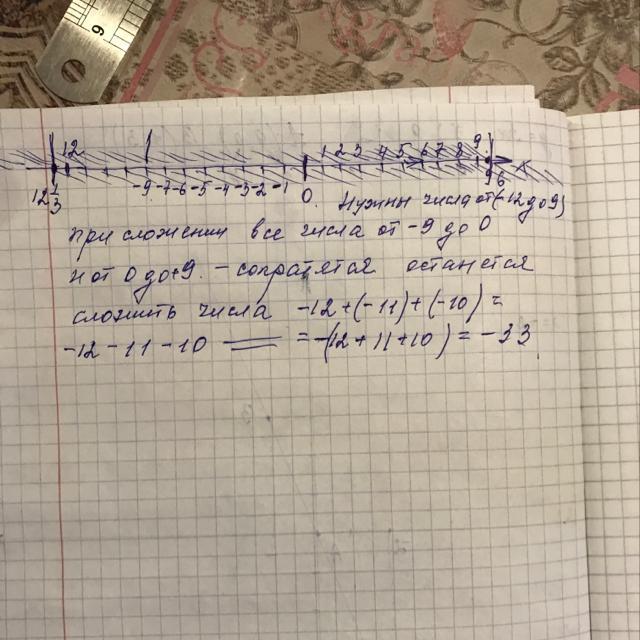 6
12
1 2 3 4 5 6 7 8 9
12 1/3
-9 -7 -6 -5 -4 -3 -2 -1 0. 9,6 x
Нужны числа от (-12 до 9)
при сложении все числа от -9 до 0
и от 0 до +9. - сопратятся останется
сложить числа -12 + (-11) + (-10) =
-12 - 11 - 10 = -(12 + 11 + 10) = -33